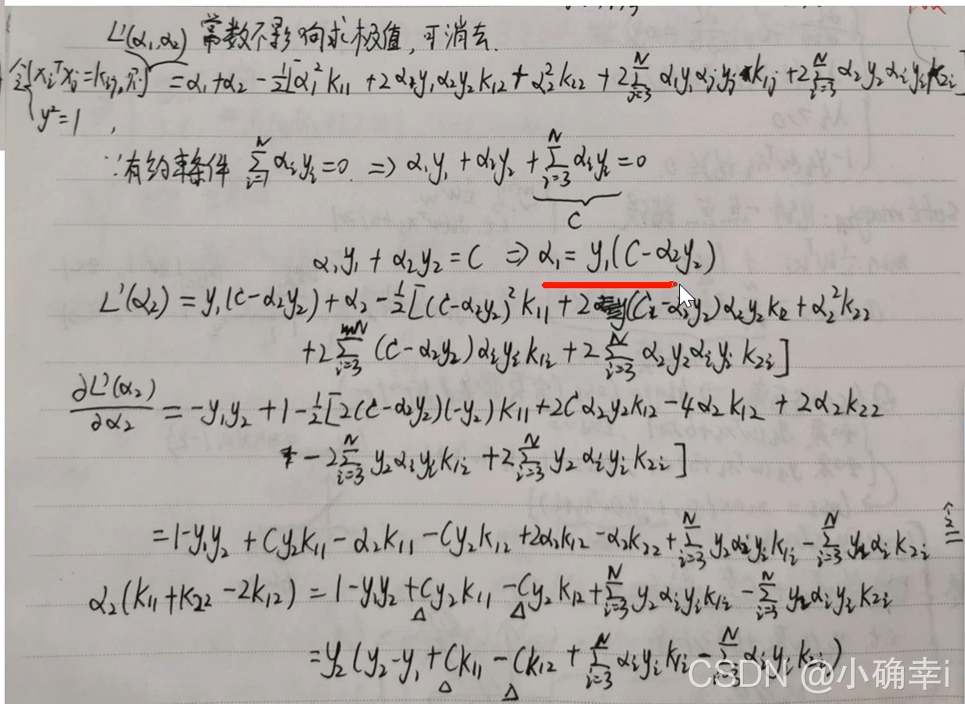 L'(α₁,α₂) 常数不影响求极值,可消去.
令{xᵢᵀxⱼ=Kᵢⱼ, 则 = α₁+α₂ - ½[α₁²K₁₁ + 2α₁y₁α₂y₂K₁₂ + α₂²K₂₂ + 2∑ⱼ₌₃ᴺ α₁y₁αⱼyⱼK₁ⱼ + 2∑ᵢ₌₃ᴺ α₂y₂αᵢyᵢK₂ᵢ]
y²=1,
∵有约束条件 ∑ᵢ₌₁ᴺ αᵢyᵢ=0. ⇒ α₁y₁ + α₂y₂ + ∑ᵢ₌₃ᴺ αᵢyᵢ=0
C
α₁y₁ + α₂y₂ = C ⇒ α₁ = y₁(C-α₂y₂)
L'(α₂) = y₁(C-α₂y₂) + α₂ - ½[(C-α₂y₂)²K₁₁ + 2(C-α₂y₂)α₂y₂K₁₂ + α₂²K₂₂
+2∑ᵢ₌₃ᴺ (C-α₂y₂)αᵢyᵢK₁ᵢ + 2∑ᵢ₌₃ᴺ α₂y₂αᵢyᵢK₂ᵢ]
∂L'(α₂)/∂α₂ = -y₁y₂ + 1 - ½[2(C-α₂y₂)(-y₂)K₁₁ + 2Cα₂y₂K₁₂ - 4α₂K₁₂ + 2α₂K₂₂
- 2∑ᵢ₌₃ᴺ y₂αᵢyᵢK₁ᵢ + 2∑ᵢ₌₃ᴺ y₂αᵢyᵢK₂ᵢ]
= 1-y₁y₂ + Cy₂K₁₁ - α₂K₁₁ - Cy₂K₁₂ + 2α₂K₁₂ - α₂K₂₂ + ∑ᵢ₌₃ᴺ y₂αᵢyᵢK₁ᵢ - ∑ᵢ₌₃ᴺ y₂αᵢK₂ᵢ 令=
α₂(K₁₁+K₂₂-2K₁₂) = 1-y₁y₂ + Cy₂K₁₁ - Cy₂K₁₂ + ∑ᵢ₌₃ᴺ y₂αᵢyᵢK₁ᵢ - ∑ᵢ₌₃ᴺ y₂αᵢyᵢK₂ᵢ
= y₂(y₂-y₁ + CK₁₁ - CK₁₂ + ∑ᵢ₌₃ᴺ αᵢyᵢK₁ᵢ - ∑ᵢ₌₃ᴺ αᵢyᵢK₂ᵢ)
CSDN @小确幸i